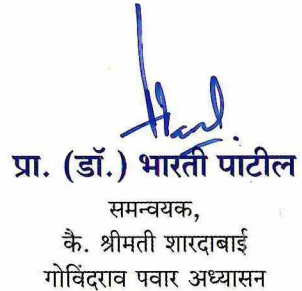 प्रा. (डॉ.) भारती पाटील
समन्वयक,
कै. श्रीमती शारदाबाई
गोविंदराव पवार अध्यासन